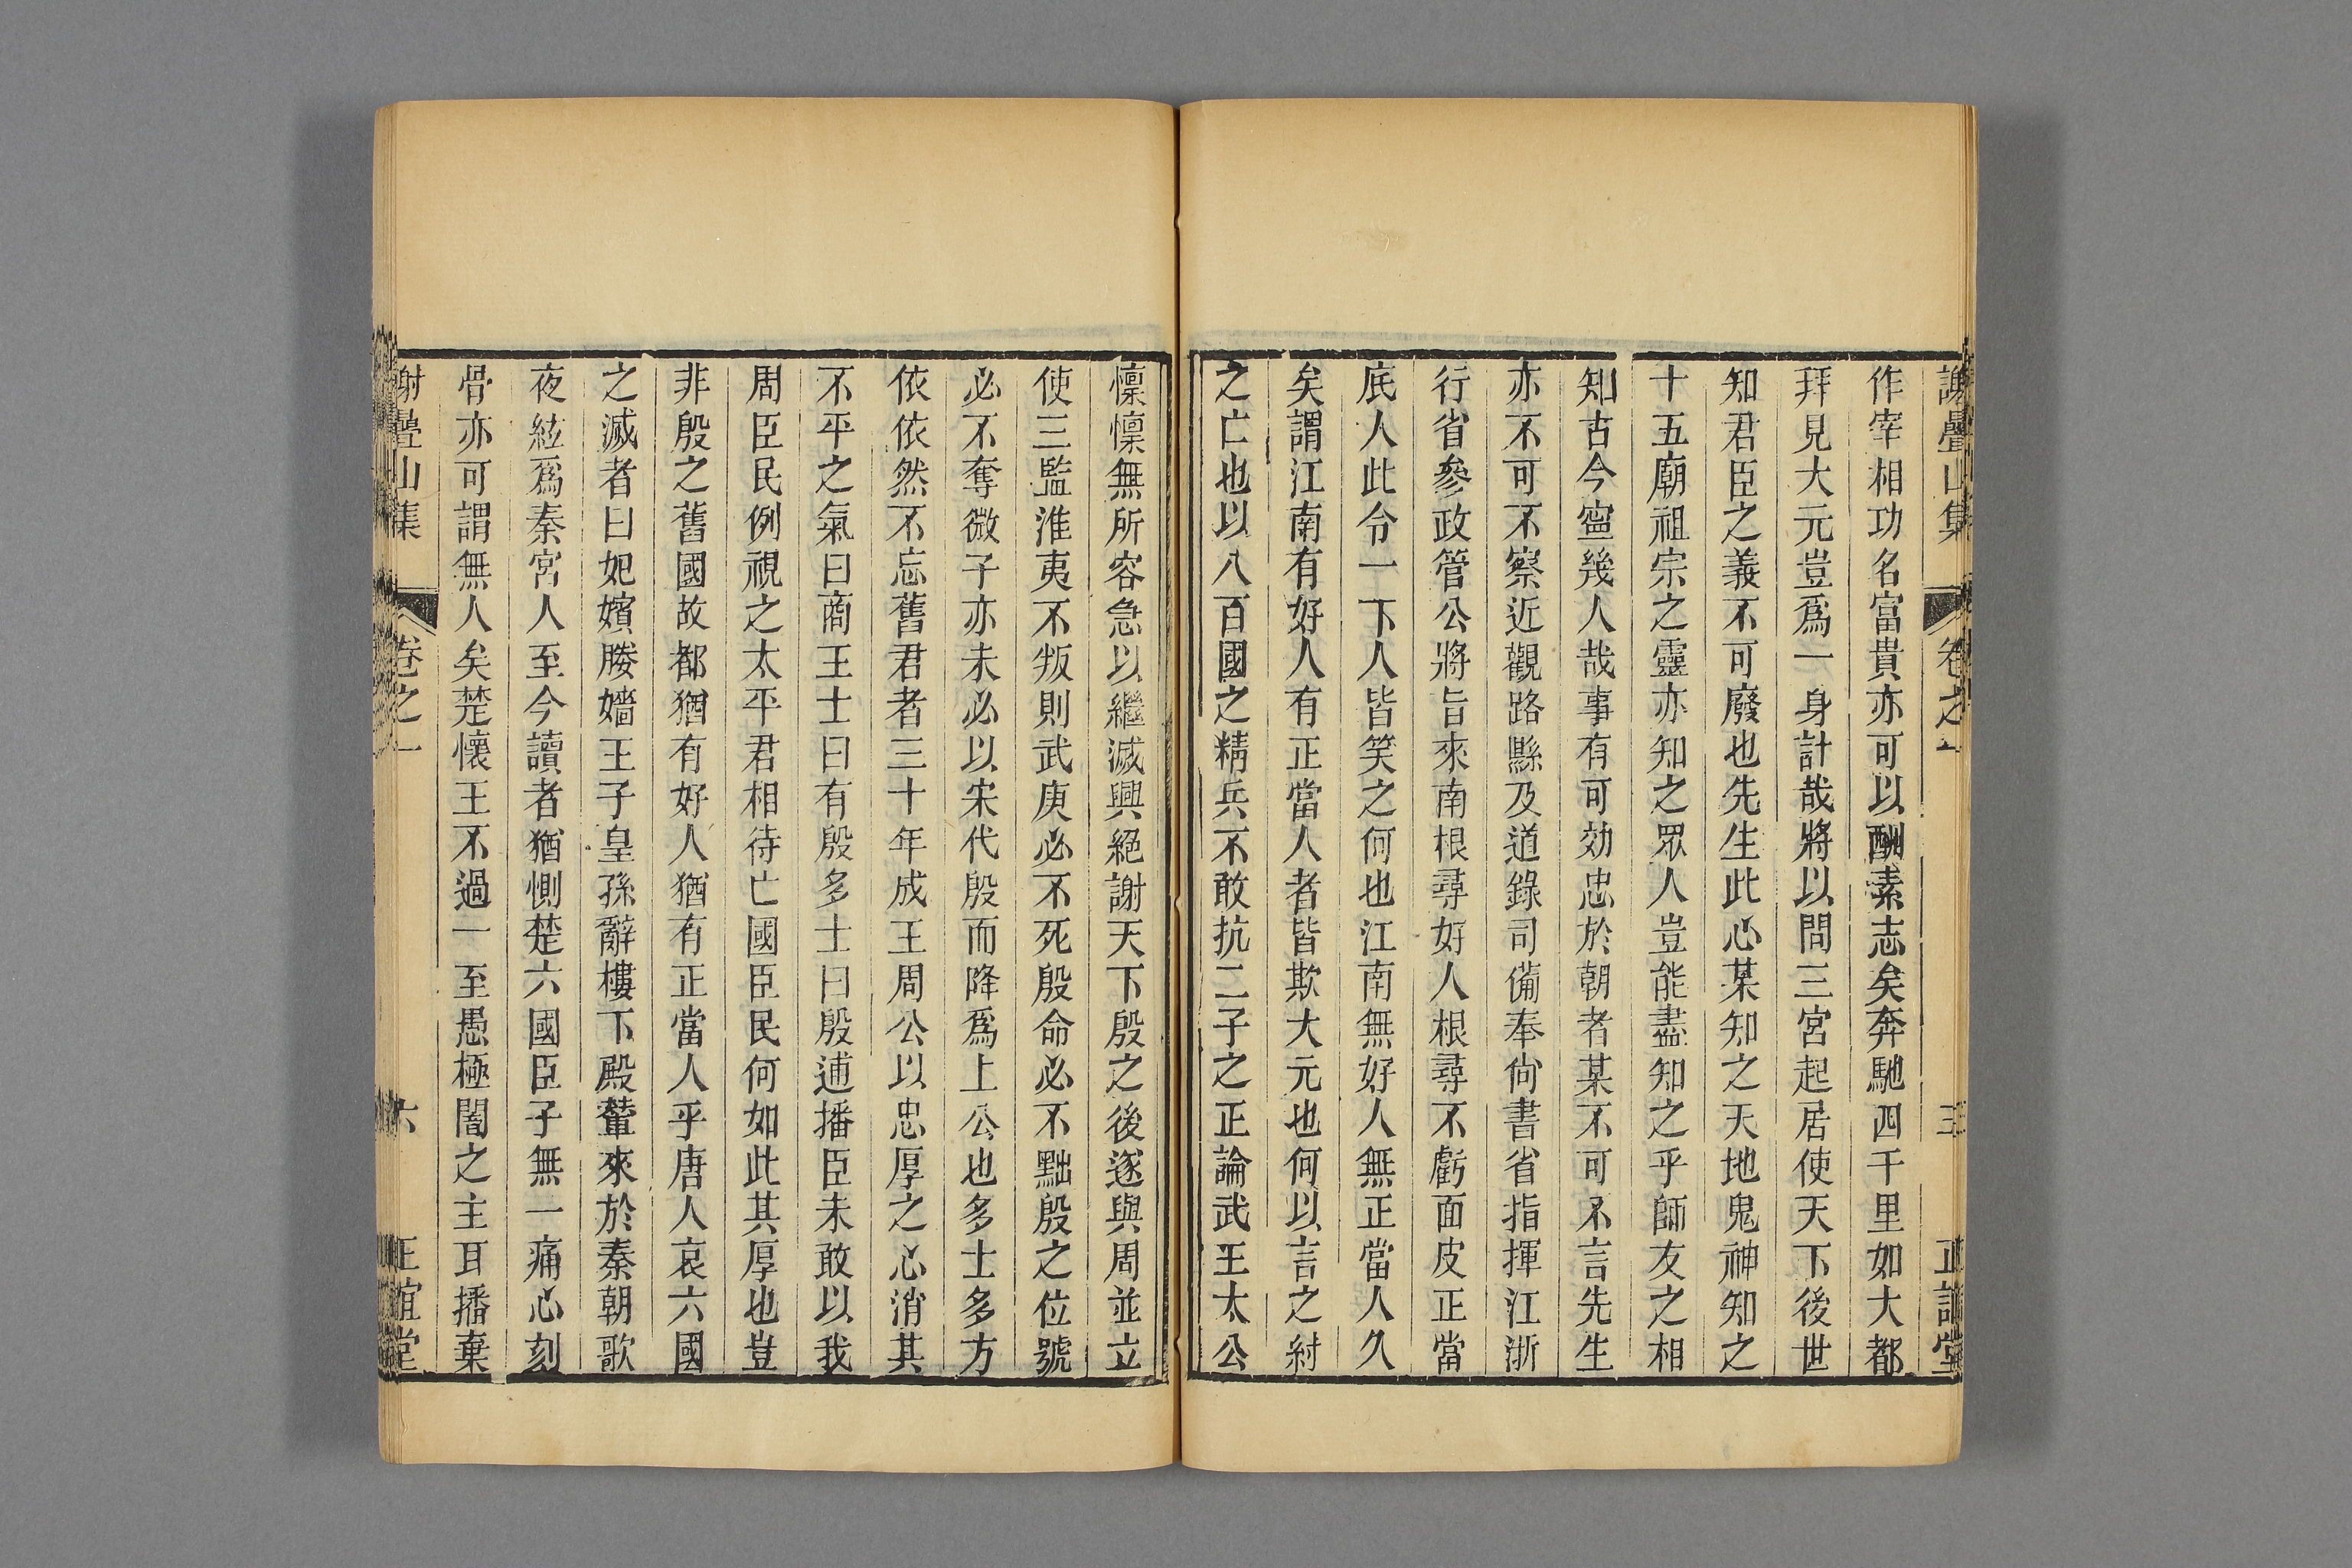 謝疊山集 卷之一 五 正誼堂
作宰相功名富貴亦可以酬素志矣奔馳四千里如大都
拜見大元豈爲一身計哉將以問三宮起居使天下後世
知君臣之義不可廢也先生此心某知之天地鬼神知之
十五廟祖宗之靈亦知之眾人豈能盡知之乎師友之相
知古今寧幾人哉事有可効忠於朝者某不可不言先生
亦不可不察近觀路縣及道錄司備奉尙書省指揮江浙
行省參政管公將旨來南根尋好人根尋不虧面皮正當
底人此令一下人皆笑之何也江南無好人無正當人久
矣謂江南有好人有正當人者皆欺大元也何以言之紂
之亡也以八百國之精兵不敢抗二子之正論武王太公
懍懍無所容急以繼滅興絕謝天下殷之後遂與周並立
使三監淮夷不叛則武庚必不死殷命必不黜殷之位號
必不奪微子亦未必以宋代殷而降爲上公也多士多方
依依然不忘舊君者三十年成王周公以忠厚之心消其
不平之氣曰商王士曰有殷多士曰殷逋播臣未敢以我
周臣民例視之太平君相待亡國臣民何如此其厚也豈
非殷之舊國故都猶有好人猶有正當人乎唐人哀六國
之滅者曰妃嬪媵嬙王子皇孫辭樓下殿輦來於秦朝歌
夜絃爲秦宮人至今讀者猶惻楚六國臣子無一痛心刻
骨亦可謂無人矣楚懷王不過一至愚極闇之主耳播棄
謝疊山集 卷之一 六 正誼堂